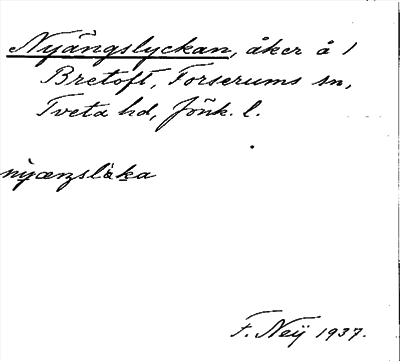 Nyängslyckan, åker å 1
Bretoft, Forserums sn,
Tveta hd, Jönk. l.
nỳæŋslɩ̀ka
F. Neÿ 1937.